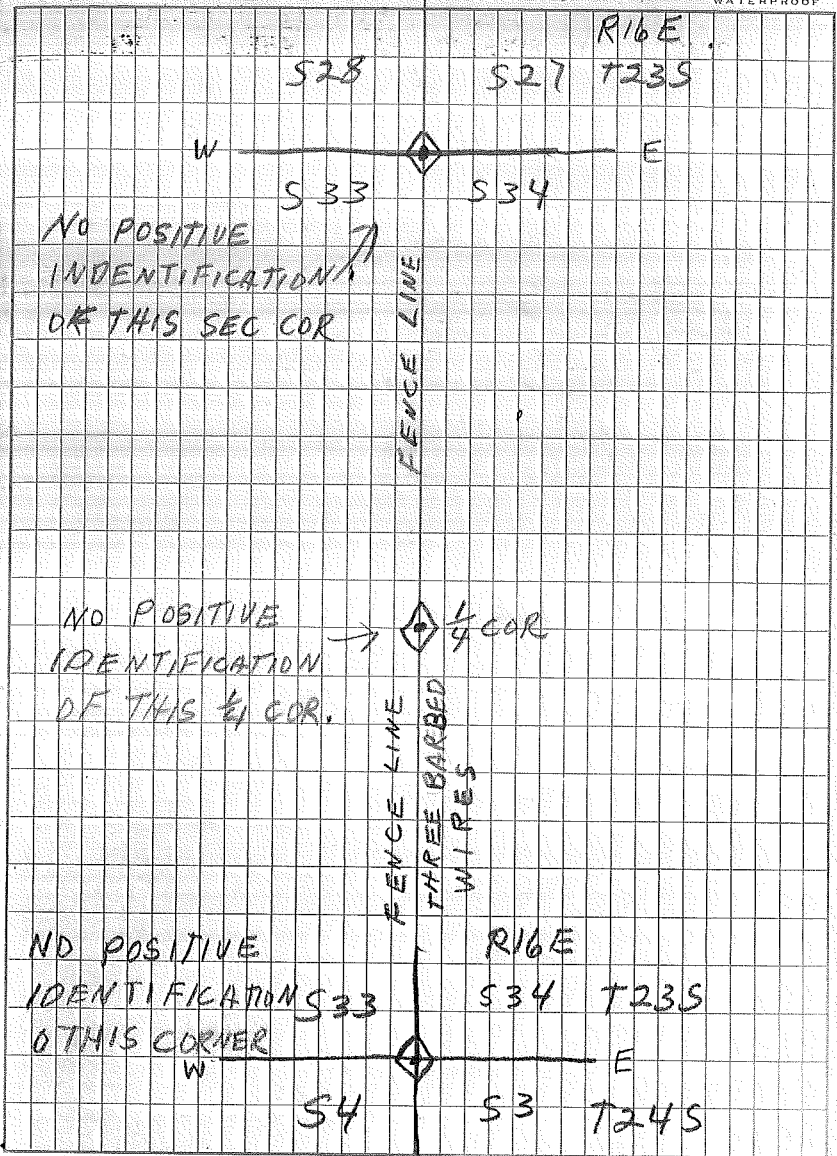 WATERPROOF
R16E
S28 S27 T23S
W E
S33 S34
NO POSITIVE
INDENTIFICATION
OF THIS SEC COR
FENCE LINE
NO POSITIVE
IDENTIFICATION
OF THIS 1/4 COR.
1/4 COR
FENCE LINE
THREE BARBED
WIRES
NO POSITIVE
IDENTIFICATION
O THIS CORNER
R16E
S33 S34 T23S
W E
S4 S3 T24S